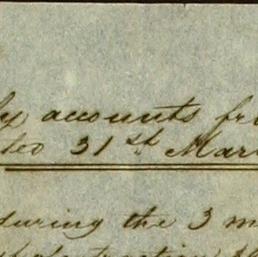 ly accounts fr
31st Mar
during the 3 m